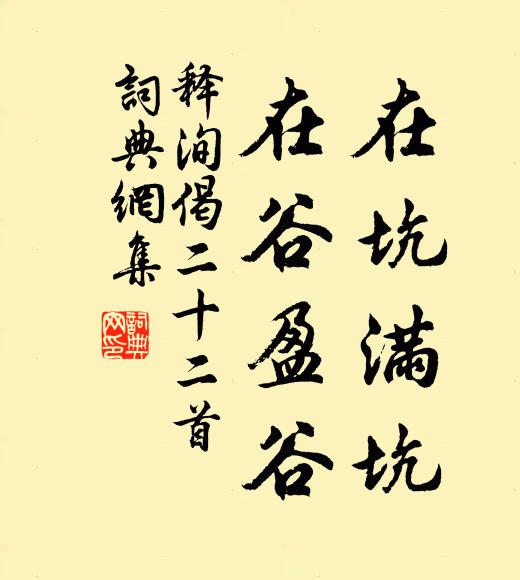 在坑满坑
在谷盈谷
释洵偈二十二首
詞典網集
詞典网印